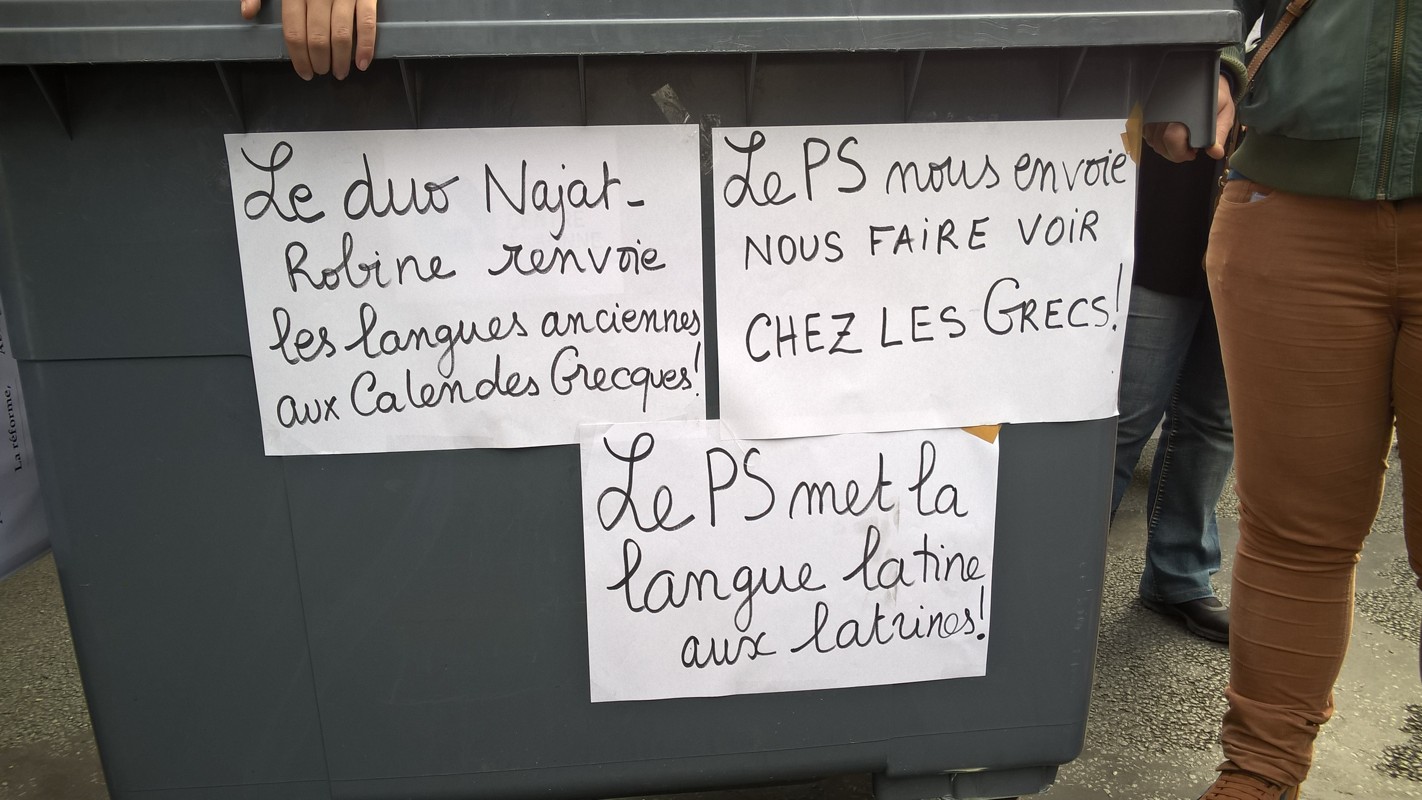 Le duo Najat-
Robine renvoie
les langues anciennes
aux Calendes Grecques!
Le PS nous envoie
NOUS FAiRE VOiR
CHEZ LES GRECS!
Le PS met la
langue latine
aux latrines!
La réforme,